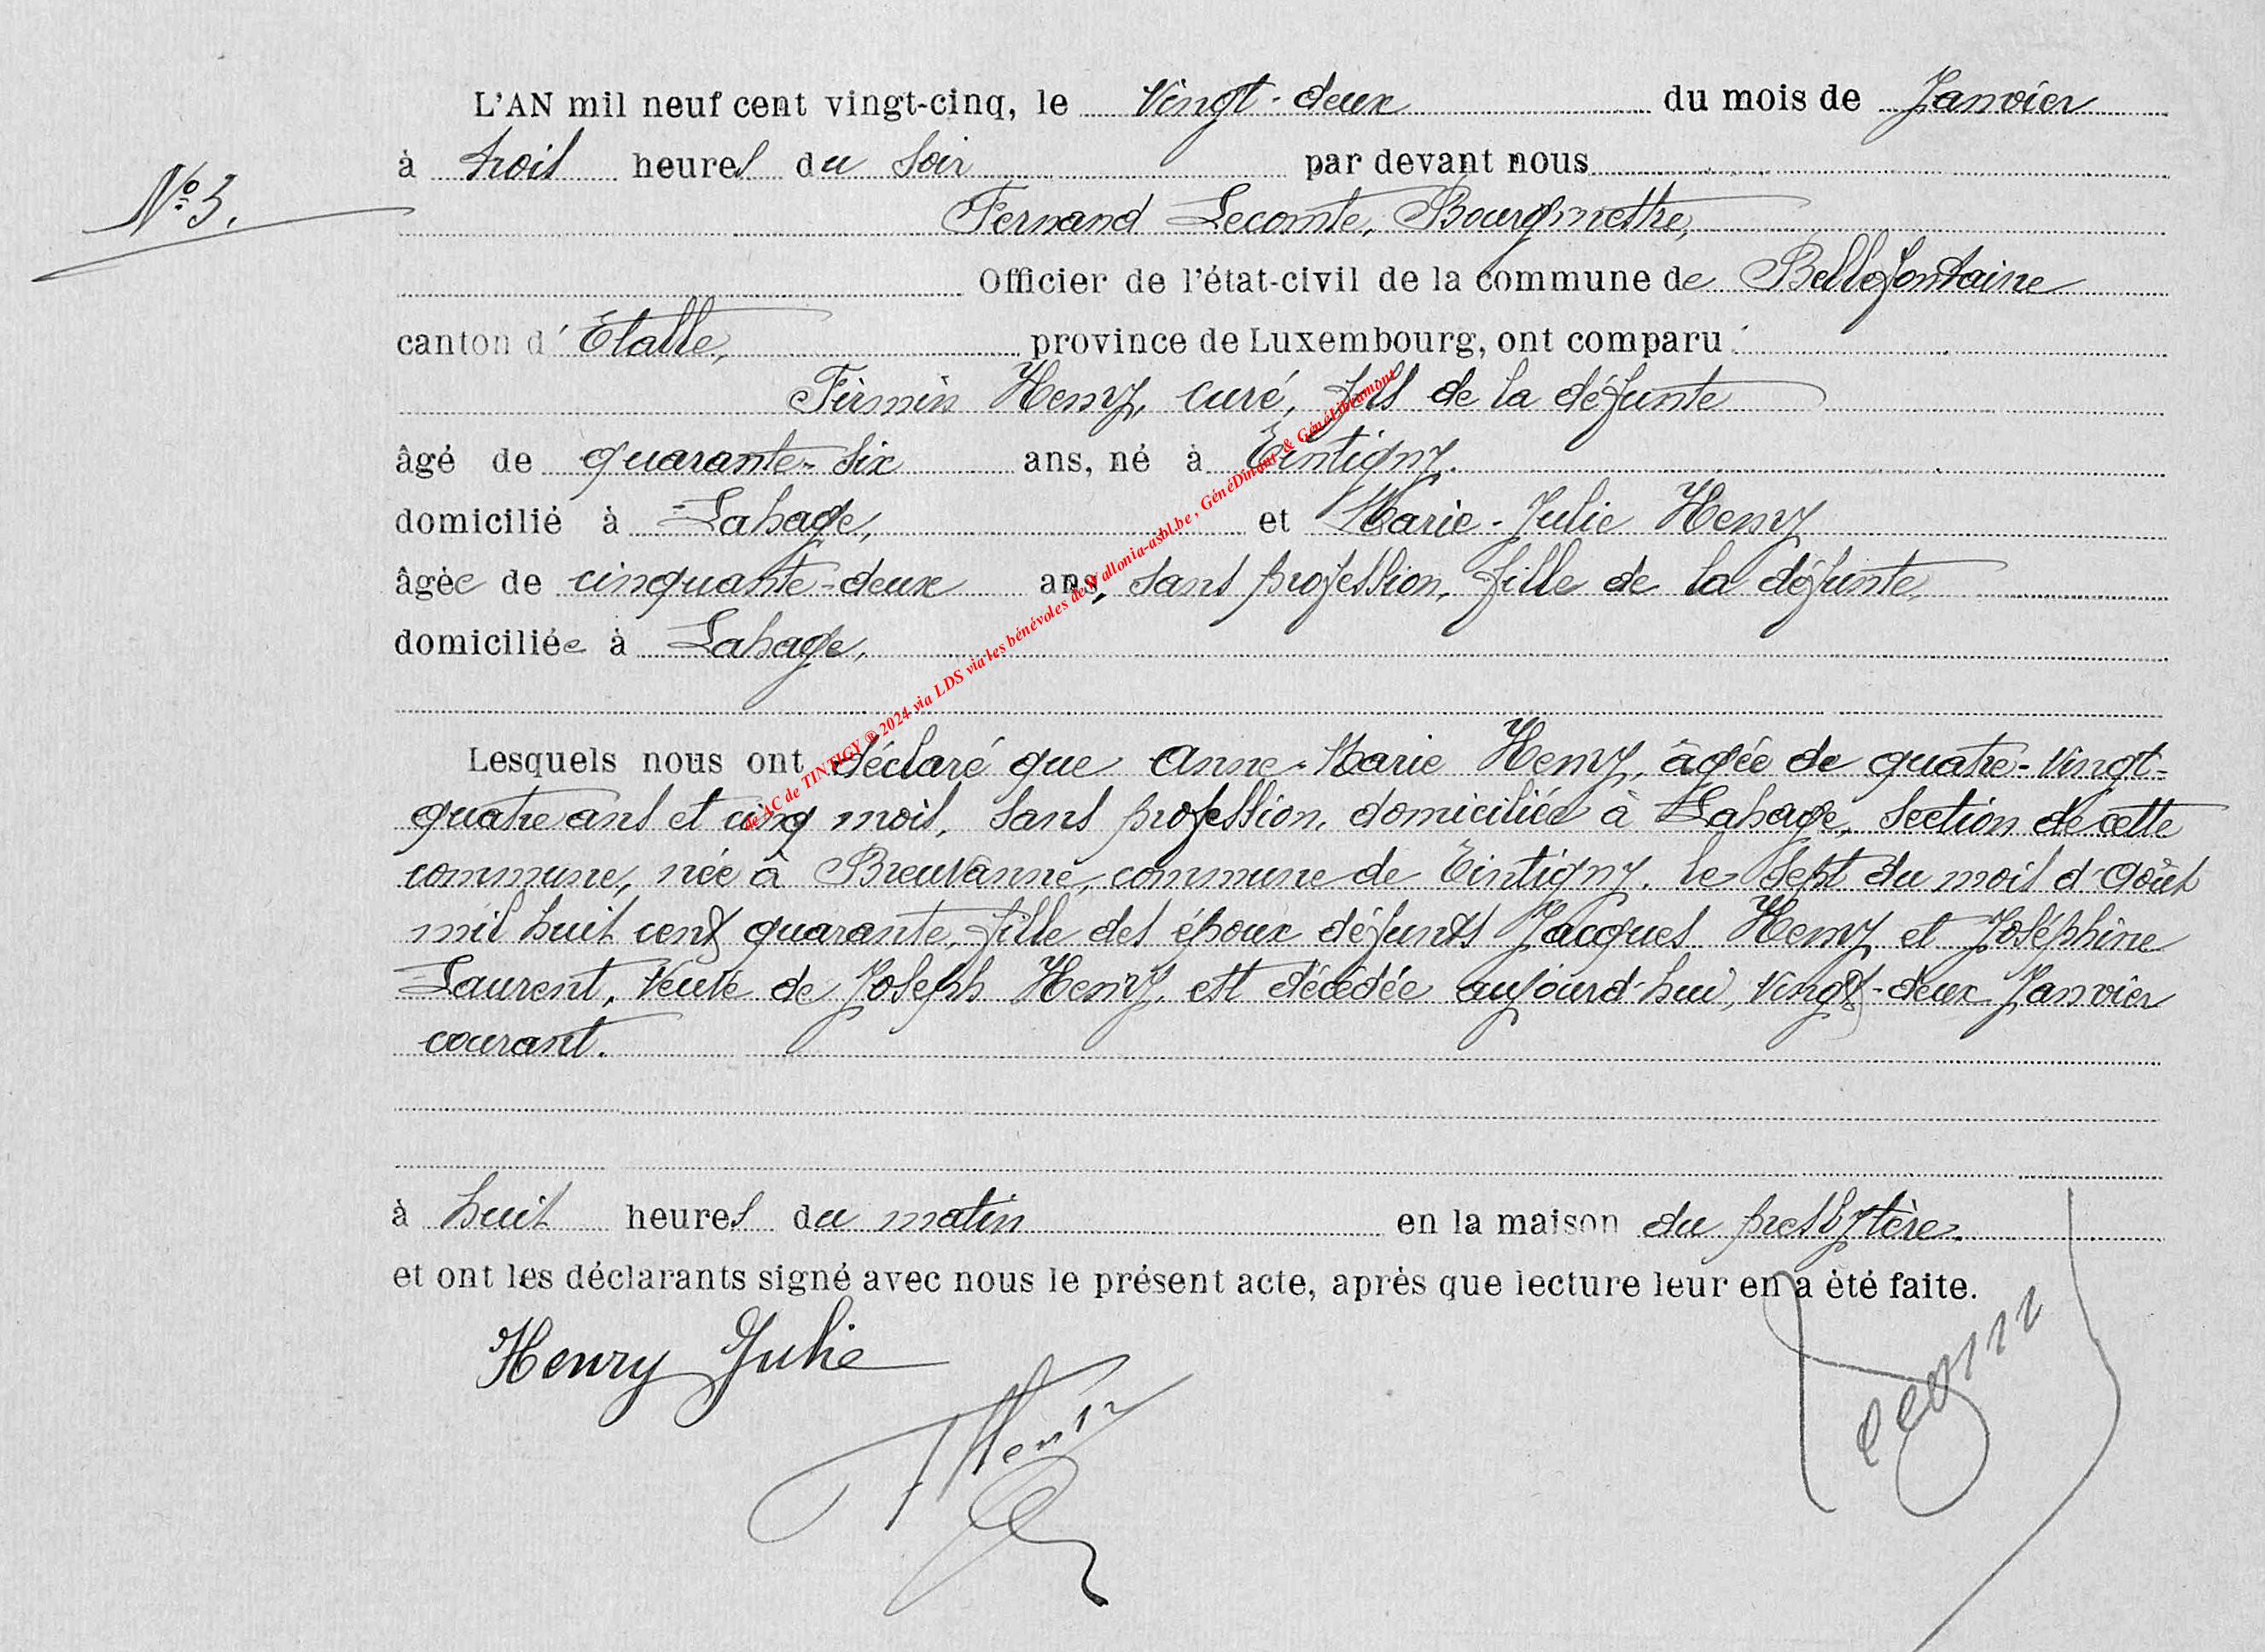 L'AN mil neuf cent vingt-cinq, le Vingt-deux du mois de Janvier
à trois heures du soir par devant nous
N° 3.
Fernand Lecomte, Bourgmestre,
Officier de l'état-civil de la commune de Bellefontaine
canton d'Etalle, province de Luxembourg, ont comparu :
Firmin Henry, curé, fils de la défunte
âgé de quarante-six ans, né à Tintigny.
domicilié à Lahage, et Marie-Julie Henry
âgée de cinquante-deux ans, sans profession, fille de la défunte,
domiciliée à Lahage,
Lesquels nous ont déclaré que Anne-Marie Henry, âgée de quatre-vingt-
quatre ans et cinq mois, sans profession, domiciliée à Lahage, section de cette
commune, née à Breuvanne, commune de Tintigny, le sept du mois d'Août
mil huit cent quarante, fille des époux défunts Jacques Henry et Joséphine
Laurent, veuve de Joseph Henry, est décédée aujourd'hui, vingt-deux Janvier
courant.
à huit heures du matin en la maison du presbytère.
et ont les déclarants signé avec nous le présent acte, après que lecture leur en a été faite.
Henry Julie
F Henry
de AC de TINTIGY ® 2024 via LDS via les bénévoles de Wallonia-asbl.be , GénéDinant & GénéLibramont